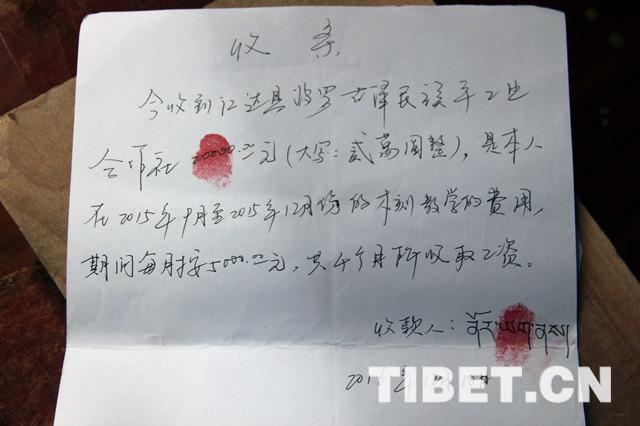 收条
今收到江达县波罗古泽民族手工业
合作社20000.00元(大写:贰萬圆整),是本人
在2015年9月至2015年12月份的木刻教学的费用,
期间每月按5000.00元,共4个月所收取工资。
收款人:ནོར་
TIBET.CN